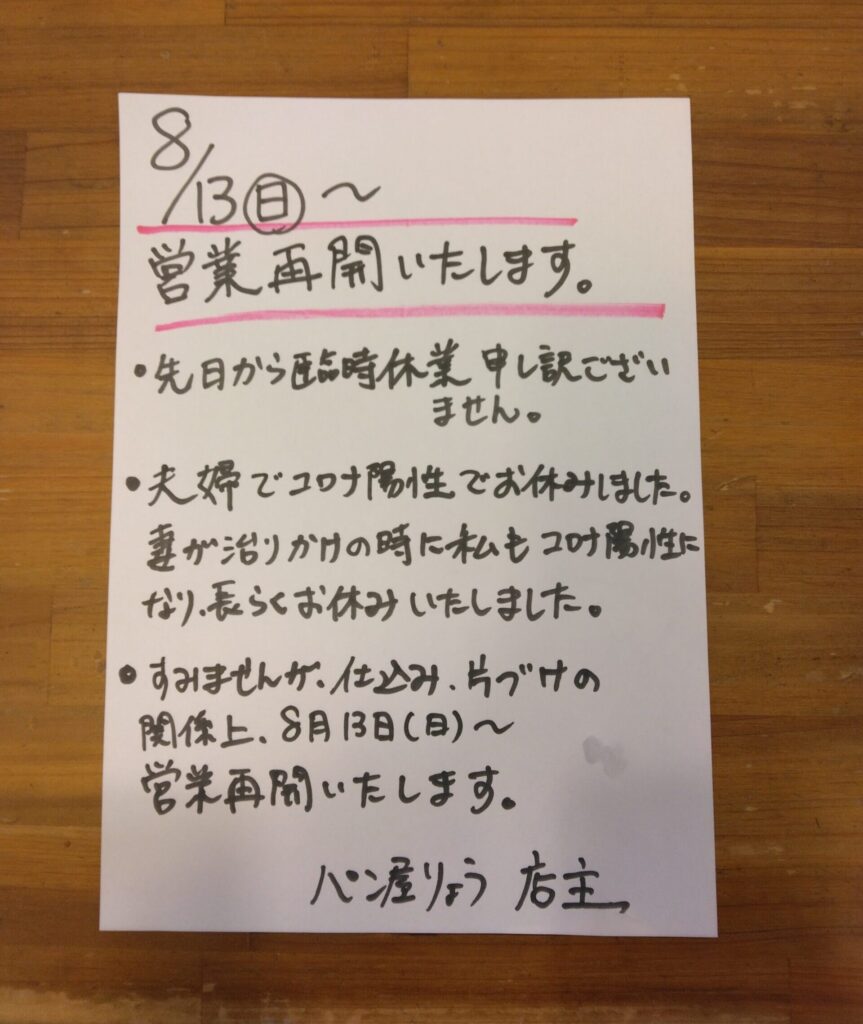 8/13㊐～
営業再開いたします。
・先日から臨時休業 申し訳ござい
ません。
・夫婦でコロナ陽性でお休みしました。
妻が治りかけの時に私もコロナ陽性に
なり、長らくお休みいたしました。
・すみませんが、仕込み、片づけの
関係上、8月13日(日)～
営業再開いたします。
パン屋りょう 店主